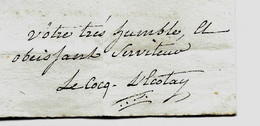 votre tres humble, et
obeissant serviteur
Le Cocq. D'Ecotay